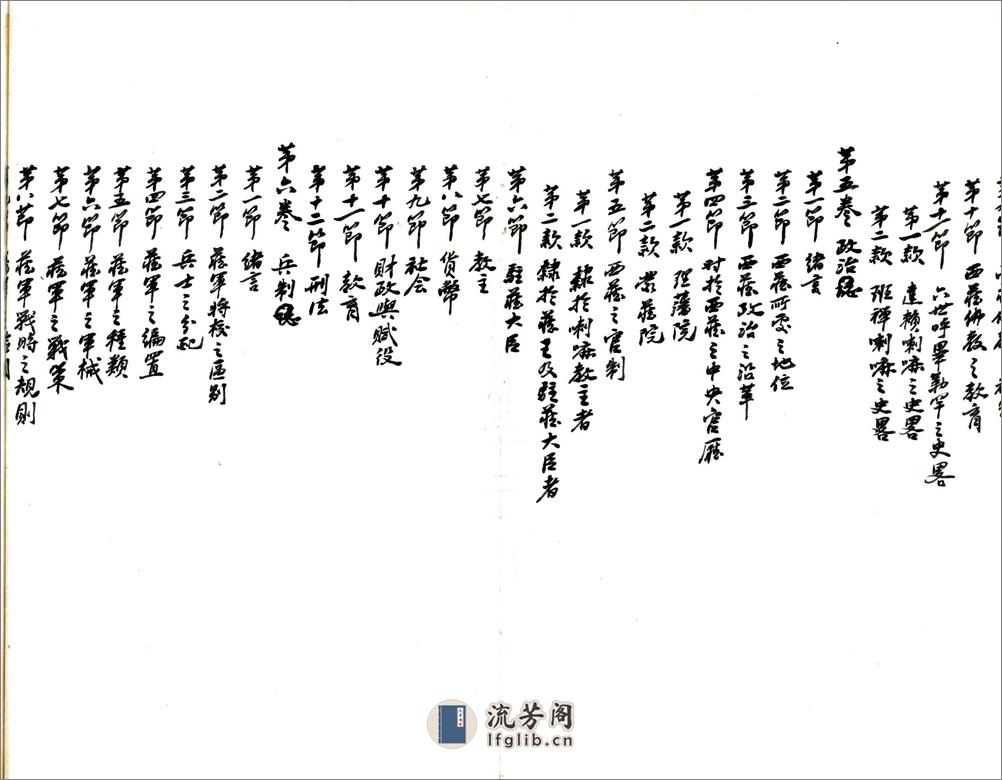 第十節 西藏佛教之教育
第十一節 六世呼畢勒罕之史畧
第一款 達賴喇嘛之史畧
第二款 班禪喇嘛之史畧
第五卷 政治
第一節 緒言
第二節 西藏所處之地位
第三節 西藏政治之沿革
第四節 对於西藏之中央官廳
第一款 理藩院
第二款 蒙藏院
第五節 西藏之官制
第一款 隸於喇嘛教主者
第二款 隸於藏王及駐藏大臣者
第六節 駐藏大臣
第七節 教主
第八節 貨幣
第九節 社会
第十節 財政與賦役
第十一節 教育
第十二節 刑法
第六卷 兵制
第一節 緒言
第二節 藏軍將校之區別
第三節 兵士之分配
第四節 藏軍之編置
第五節 藏軍之種類
第六節 藏軍之軍械
第七節 藏軍之戰策
第八節 藏軍戰時之規則
流芳阁
lfglib.cn